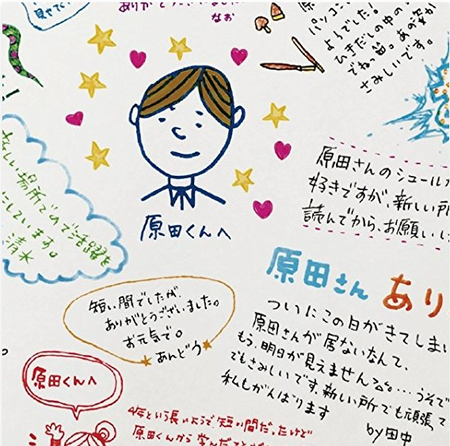 ありがと
なお
見せて
パソコン
よんでた!
ひきだしの中の
でね。笛。
さみしいです。
原田くんへ
原田さんのシュール
好きですが、新しい所
読んでから、お願いし
新しい場所での活躍を
にしています。
清水
短い間でしたが、
ありがとうございました。
お元気で。
あんどう
原田さん あり
ついにこの日がきてしまい
原田さんが居ないなんて、
もう、明日が見えません。うそで
でもさみしいです。新しい所でも頑張て
私もがんばります
by 田中
原田くんへ
4年という長いようで短い間だったけど
原田くんから学んだこと